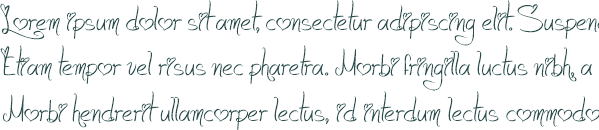 Lorem ipsum dolor sit amet, consectetur adipiscing elit. Suspen
Etiam tempor vel risus nec pharetra. Morbi fringilla luctus nibh, a
Morbi hendrerit ullamcorper lectus, id interdum lectus commodo